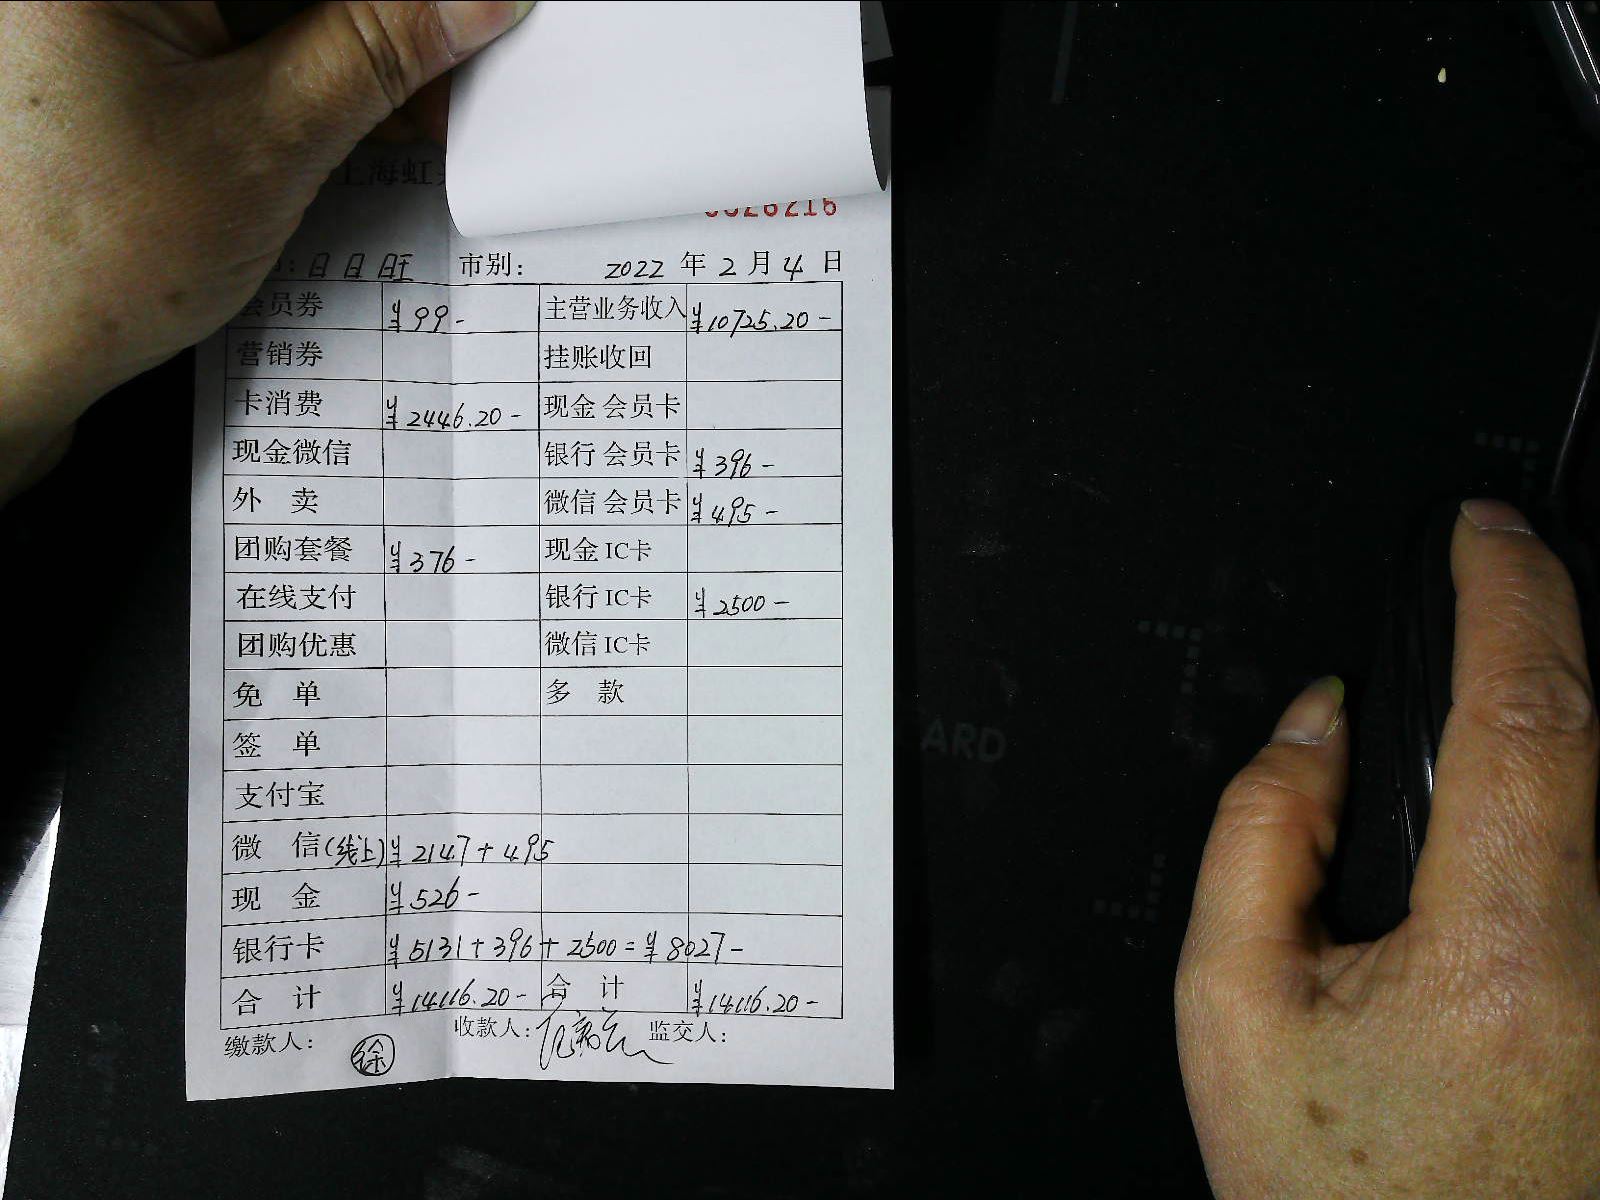 上海虹
日日旺 市别： 2022年2月4日
会员券 ¥99- 主营业务收入 ¥10725.20-
营销券 挂账收回
卡消费 ¥2446.20- 现金会员卡
现金微信 银行会员卡 ¥396-
外 卖 微信会员卡 ¥495-
团购套餐 ¥376- 现金IC卡
在线支付 银行IC卡 ¥2500-
团购优惠 微信IC卡
免 单 多 款
签 单
支付宝
微 信(线上) ¥2147+495
现 金 ¥526-
银行卡 ¥5131+396+2500=¥8027-
合 计 ¥14116.20- 合 计 ¥14116.20-
缴款人： 徐 收款人： 监交人：
ARD